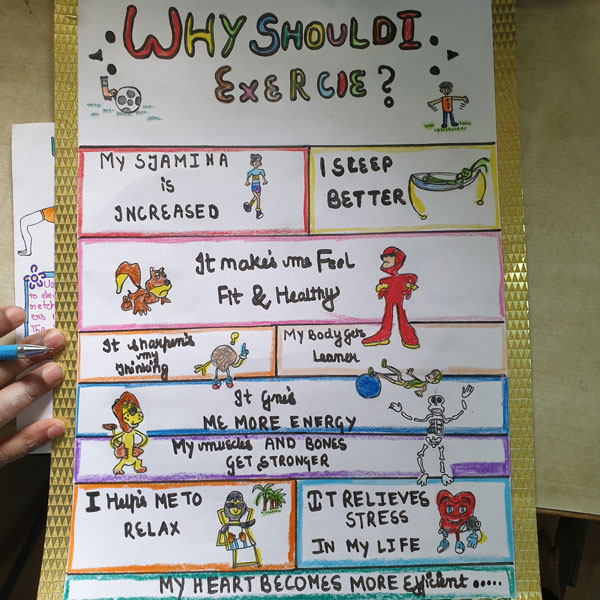 WHY SHOULD I
EXERCIE?
MY SJAMINA
is
INCREASED
I SLEEP
BETTER
It make's me Feel
Fit & Healthy
It sharpen's
my
thinking
My Body gets
Leaner
It Give's
ME MORE ENERGY
My muscles AND BONES
GET STRONGER
I Help's ME TO
RELAX
IT RELIEVES
STRESS
IN MY LIFE
MY HEART BECOMES MORE Efficient .....
Us
to
The